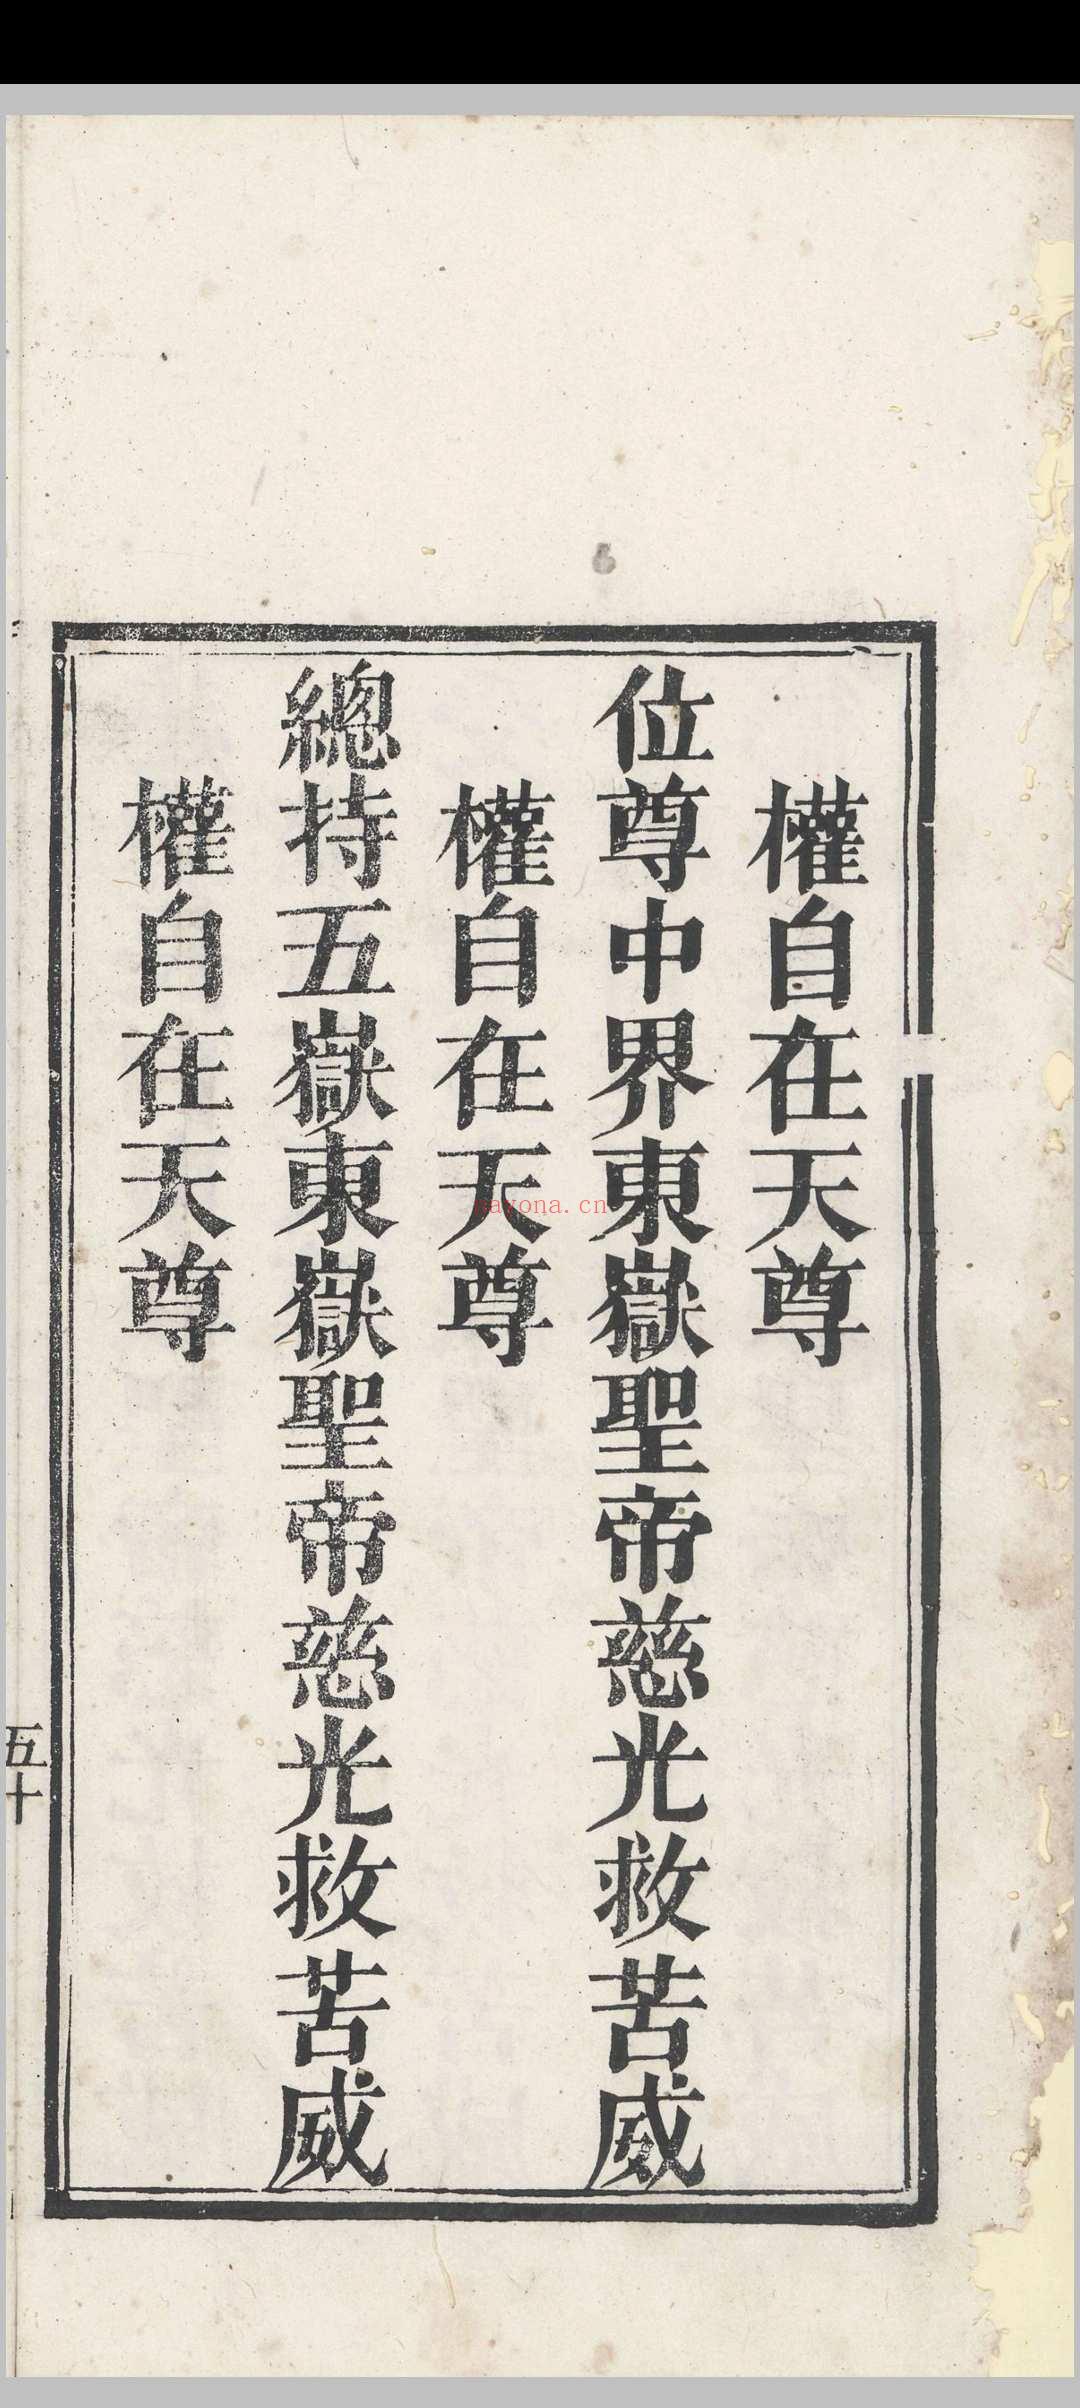 權自在天尊
位尊中界東嶽聖帝慈光救苦威
權自在天尊
總持五嶽東嶽聖帝慈光救苦威
權自在天尊
五十
nayona.cn